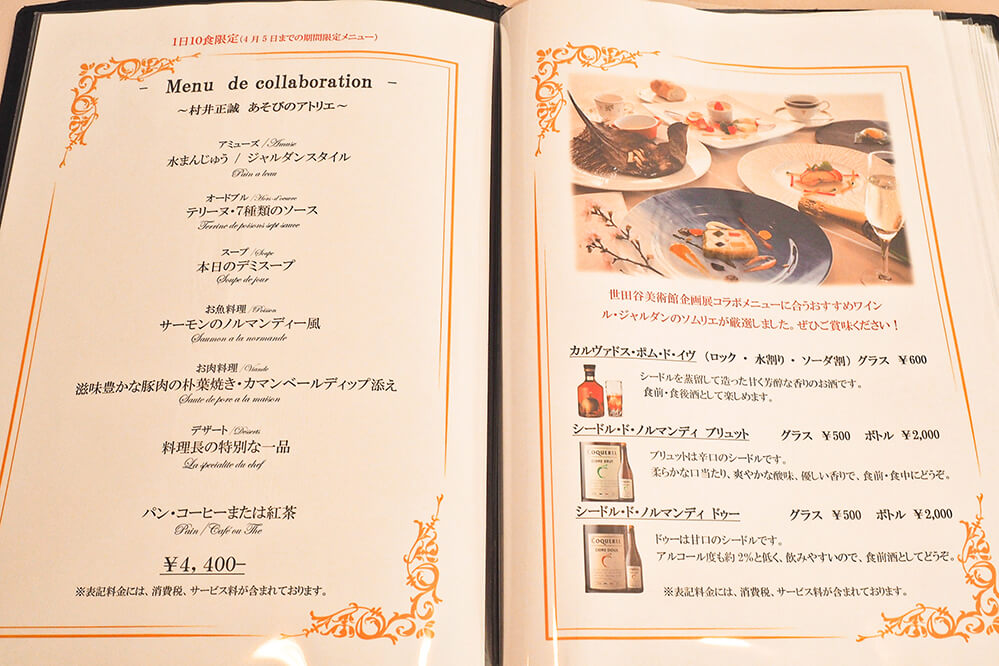 1日10食限定(4月5日までの期間限定メニュー)
- Menu de collaboration -
～村井正誠 あそびのアトリエ～
アミューズ / Amuse
水まんじゅう / ジャルダンスタイル
Pain a leau
オードブル / Hors-d'oeuvre
テリーヌ・7種類のソース
Terrine de poisons sept sauce
スープ / Soupe
本日のデミスープ
Soupe de jour
お魚料理 / Poisson
サーモンのノルマンディー風
Saumon a la normande
お肉料理 / Viande
滋味豊かな豚肉の朴葉焼き・カマンベールディップ添え
Saute de porc a la maison
デザート / Desserts
料理長の特別な一品
La specialite du chef
パン・コーヒーまたは紅茶
Pain / Café ou The
￥4,400-
※表記料金には、消費税、サービス料が含まれております。
世田谷美術館企画展コラボメニューに合うおすすめワイン
ル・ジャルダンのソムリエが厳選しました。ぜひご賞味ください！
カルヴァドス・ポム・ド・イヴ (ロック ・ 水割り ・ ソーダ割) グラス ￥600
シードルを蒸留して造った甘く芳醇な香りのお酒です。
食前・食後酒として楽しめます。
シードル・ド・ノルマンディ ブリュット グラス ￥500 ボトル ￥2,000
COQUEREL
CIDRE BRUT
ブリュットは辛口のシードルです。
柔らかな口当たり、爽やかな酸味、優しい香りで、食前・食中にどうぞ。
シードル・ド・ノルマンディ ドゥー グラス ￥500 ボトル ￥2,000
COQUEREL
CIDRE DOUX
ドゥーは甘口のシードルです。
アルコール度も約2％と低く、飲みやすいので、食前酒としてどうぞ。
※表記料金には、消費税、サービス料が含まれております。